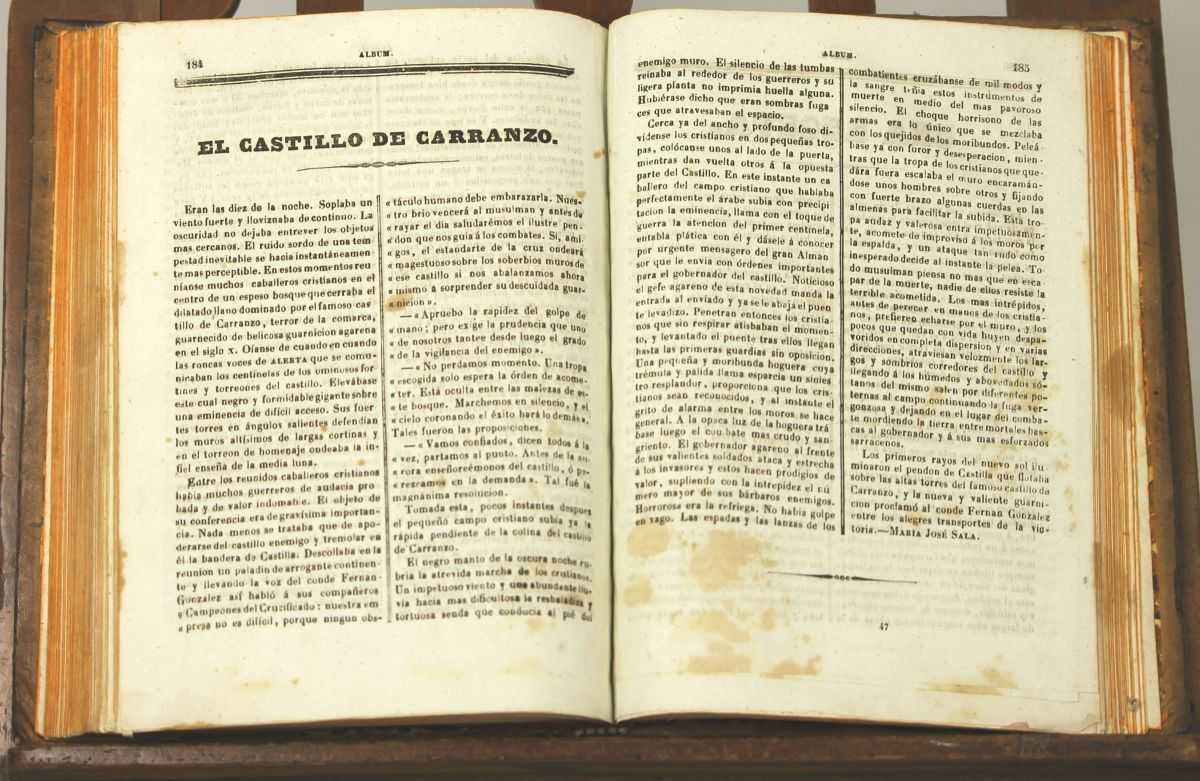 184
ALBUM.
EL CASTILLO DE CARRANZO.
Eran las diez de la noche. Soplaba un
viento fuerte y lloviznaba de continuo. La
oscuridad no dejaba entrever los objetos
mas cercanos. El ruido sordo de una tem
pestad inevitable se hacia instantáneamen-
te mas perceptible. En estos momentos reu
níanse muchos caballeros cristianos en el
centro de un espeso bosque que cerraba el
dilatado llano dominado por el famoso cas
tillo de Carranzo, terror de la comarca,
guarnecido de belicosa guarnicion agarena
en el siglo x. Oíanse de cuando en cuando
las roncas voces de ALERTA que se comu-
nicaban los centinelas de los ominosos for-
tines y torreones del castillo. Elevábase
este cual negro y formidable gigante sobre
una eminencia de difícil acceso. Sus fuer
tes torres en ángulos salientes defendian
los muros altísimos de largas cortinas y
en el torreon de homenaje ondeaba la in-
fiel enseña de la media luna.
Entre los reunidos caballeros cristianos
habia muchos guerreros de audacia pro
bada y de valor indomable. El objeto de
su conferencia era de gravísima importan-
cia. Nada menos se trataba que de apo-
derarse del castillo enemigo y tremolar en
él la bandera de Castilla. Descollaba en la
reunion un paladin de arrogante continen-
te y llevando la voz del conde Fernan-
Gonzalez así habló á sus compañeros
«Campeones del Crucificado: nuestra em
« presa no es difícil, porque ningun obs-
« táculo humano debe embarazarla. Nues-
« tro brio vencerá al musulman y antes de
« rayar el dia saludarémos el ilustre pen-
« don que nos guia á los combates. Sí, ami-
« gos, el estandarte de la cruz ondeará
« magestuoso sobre los soberbios muros de
« ese castillo si nos abalanzamos ahora
« mismo á sorprender su descuidada guar-
« nicion ».
—« Apruebo la rapidez del golpe de
« mano; pero exige la prudencia que uno
« de nosotros tantee desde luego el grado
« de la vigilancia del enemigo ».
—« No perdamos momento. Una tropa
« escogida solo espera la órden de acome-
« ter. Está oculta entre las malezas de es-
« te bosque. Marchemos en silencio, y el
« cielo coronando el éxito hará lo demas».
Tales fueron las proposiciones.
—« Vamos confiados, dicen todos á la
« vez, partamos al punto. Antes de la au-
« rora enseñoreémonos del castillo, ó pe-
« rezcamos en la demanda ». Tal fué la
magnánima resolucion.
Tomada esta, pocos instantes despues
el pequeño campo cristiano subia ya la
rápida pendiente de la colina del castillo
de Carranzo.
El negro manto de la oscura noche cu-
bria la atrevida marcha de los cristianos.
Un impetuoso viento y una abundante llu-
via hacia mas dificultosa la resbaladiza y
tortuosa senda que conducia al pié del
ALBUM.
185
enemigo muro. El silencio de las tumbas
reinaba al rededor de los guerreros y su
ligera planta no imprimia huella alguna.
Hubiérase dicho que eran sombras fuga
ces que atravesaban el espacio.
Cerca ya del ancho y profundo foso di-
vídense los cristianos en dos pequeñas tro-
pas, colócanse unos al lado de la puerta,
mientras dan vuelta otros á la opuesta
parte del Castillo. En este instante un ca
ballero del campo cristiano que hablaba
perfectamente el árabe subia con precipi
tacion la eminencia, llama con el toque de
guerra la atencion del primer centinela,
entabla plática con él y dásele á conocer
por urgente mensagero del gran Alman
sor que le envia con órdenes importantes
para el gobernador del castillo. Noticioso
el gefe agareno de esta novedad manda la
entrada al enviado y ya se le abaja el puen
te levadizo. Penetran entonces los cristia-
nos que sin respirar atisbaban el momen-
to, y levantado el puente tras ellos llegan
hasta las primeras guardias sin oposicion.
Una pequeña y moribunda hoguera cuya
trémula y pálida llama esparcia un sinies
tro resplandor, proporciona que los cris-
tianos sean reconocidos, y al instante el
grito de alarma entre los moros se hace
general. A la opaca luz de la hoguera trá
base luego el combate mas crudo y san-
griento. El gobernador agareno al frente
de sus valientes soldados ataca y estrecha
á los invasores y estos hacen prodigios de
valor, supliendo con la intrepidez el nú
mero mayor de sus bárbaros enemigos.
Horrorosa era la refriega. No habia golpe
en vago. Las espadas y las lanzas de los
combatientes cruzábanse de mil modos y
la sangre teñia estos instrumentos de
muerte en medio del mas pavoroso
silencio. El choque horrisono de las
armas era lo único que se mezclaba
con los quejidos de los moribundos. Peleá-
base ya con furor y desesperacion, mien-
tras que la tropa de los cristianos que que-
dára fuera escalaba el muro encaramán-
dose unos hombres sobre otros y fijando
con fuerte brazo algunas cuerdas en las
almenas para facilitar la subida. Está tro-
pa audaz y valerosa entra impetuosamen-
te, acomete de improviso á los moros por
la espalda, y un ataque tan rudo como
inesperado decide al instante la pelea. To-
do musulman piensa no mas que en esca-
par de la muerte, nadie de ellos resiste la
terrible acometida. Los mas intrépidos,
antes de perecer en manos de los cristia-
nos, prefieren echarse por el muro, y los
pocos que quedan con vida huyen despa-
voridos en completa dispersion y en varias
direcciones, atraviesan velozmente los lar-
gos y sombrios corredores del castillo y
llegando á los húmedos y abovedados só-
tanos del mismo salen por diferentes po-
ternas al campo continuando la fuga ver-
gonzosa y dejando en el lugar del comba-
te mordiendo la tierra entre mortales bas-
cas al gobernador y á sus mas esforzados
sarracenos.
Los primeros rayos del nuevo sol ilu-
minaron el pendon de Castilla que flotaba
sobre las altas torres del famoso castillo de
Carranzo, y la nueva y valiente guarni-
cion proclamó al conde Fernan Gonzalez
entre los alegres transportes de la vic-
toria.—MARIA JOSÉ SALA.
47